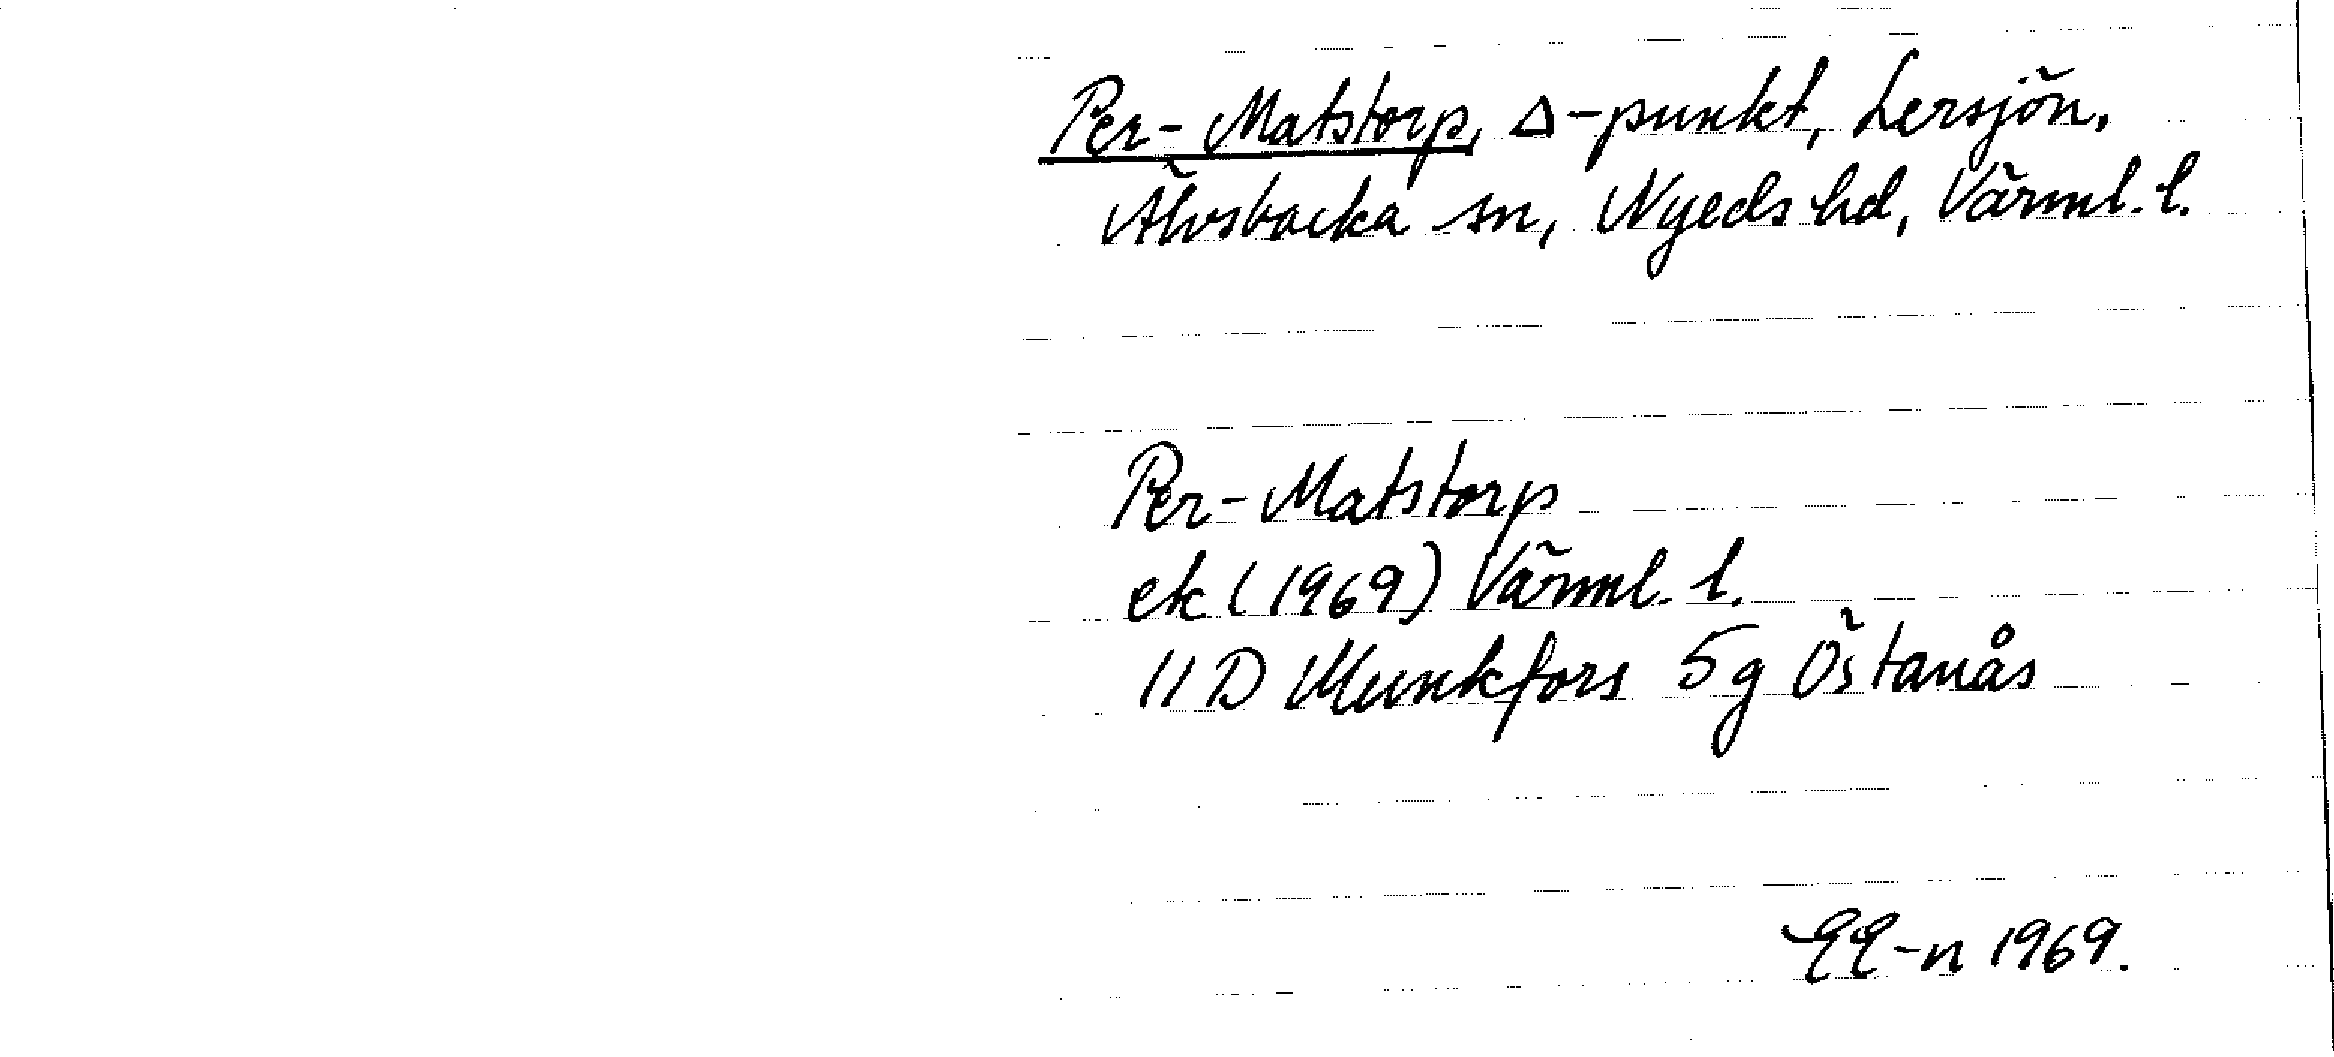 Per-Matstorp, Δ-punkt, Lersjön,
Älvsbacka sn, Nyeds hd, Värml. l.
Per-Matstorp
ek (1969) Värml. l.
11 D Munkfors 5g Östanås
1969.